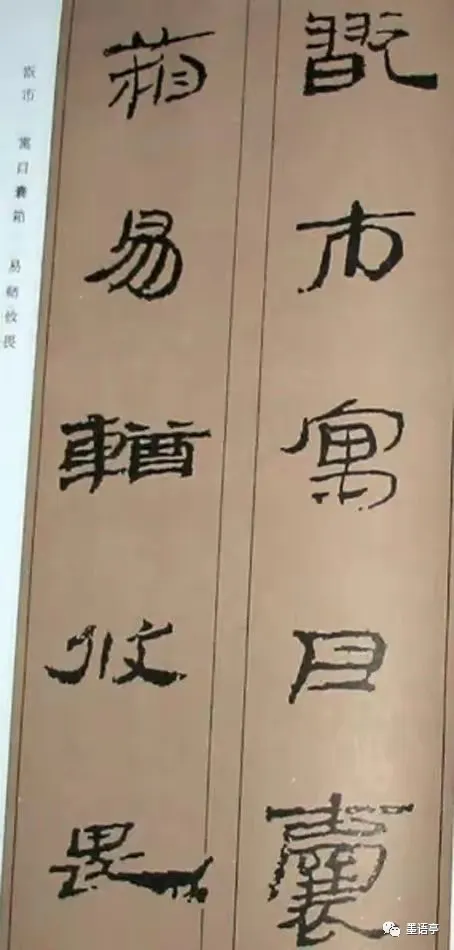 翫市寓目囊
箱易輶攸畏
翫市 寓目囊箱 易輶攸畏
墨语亭